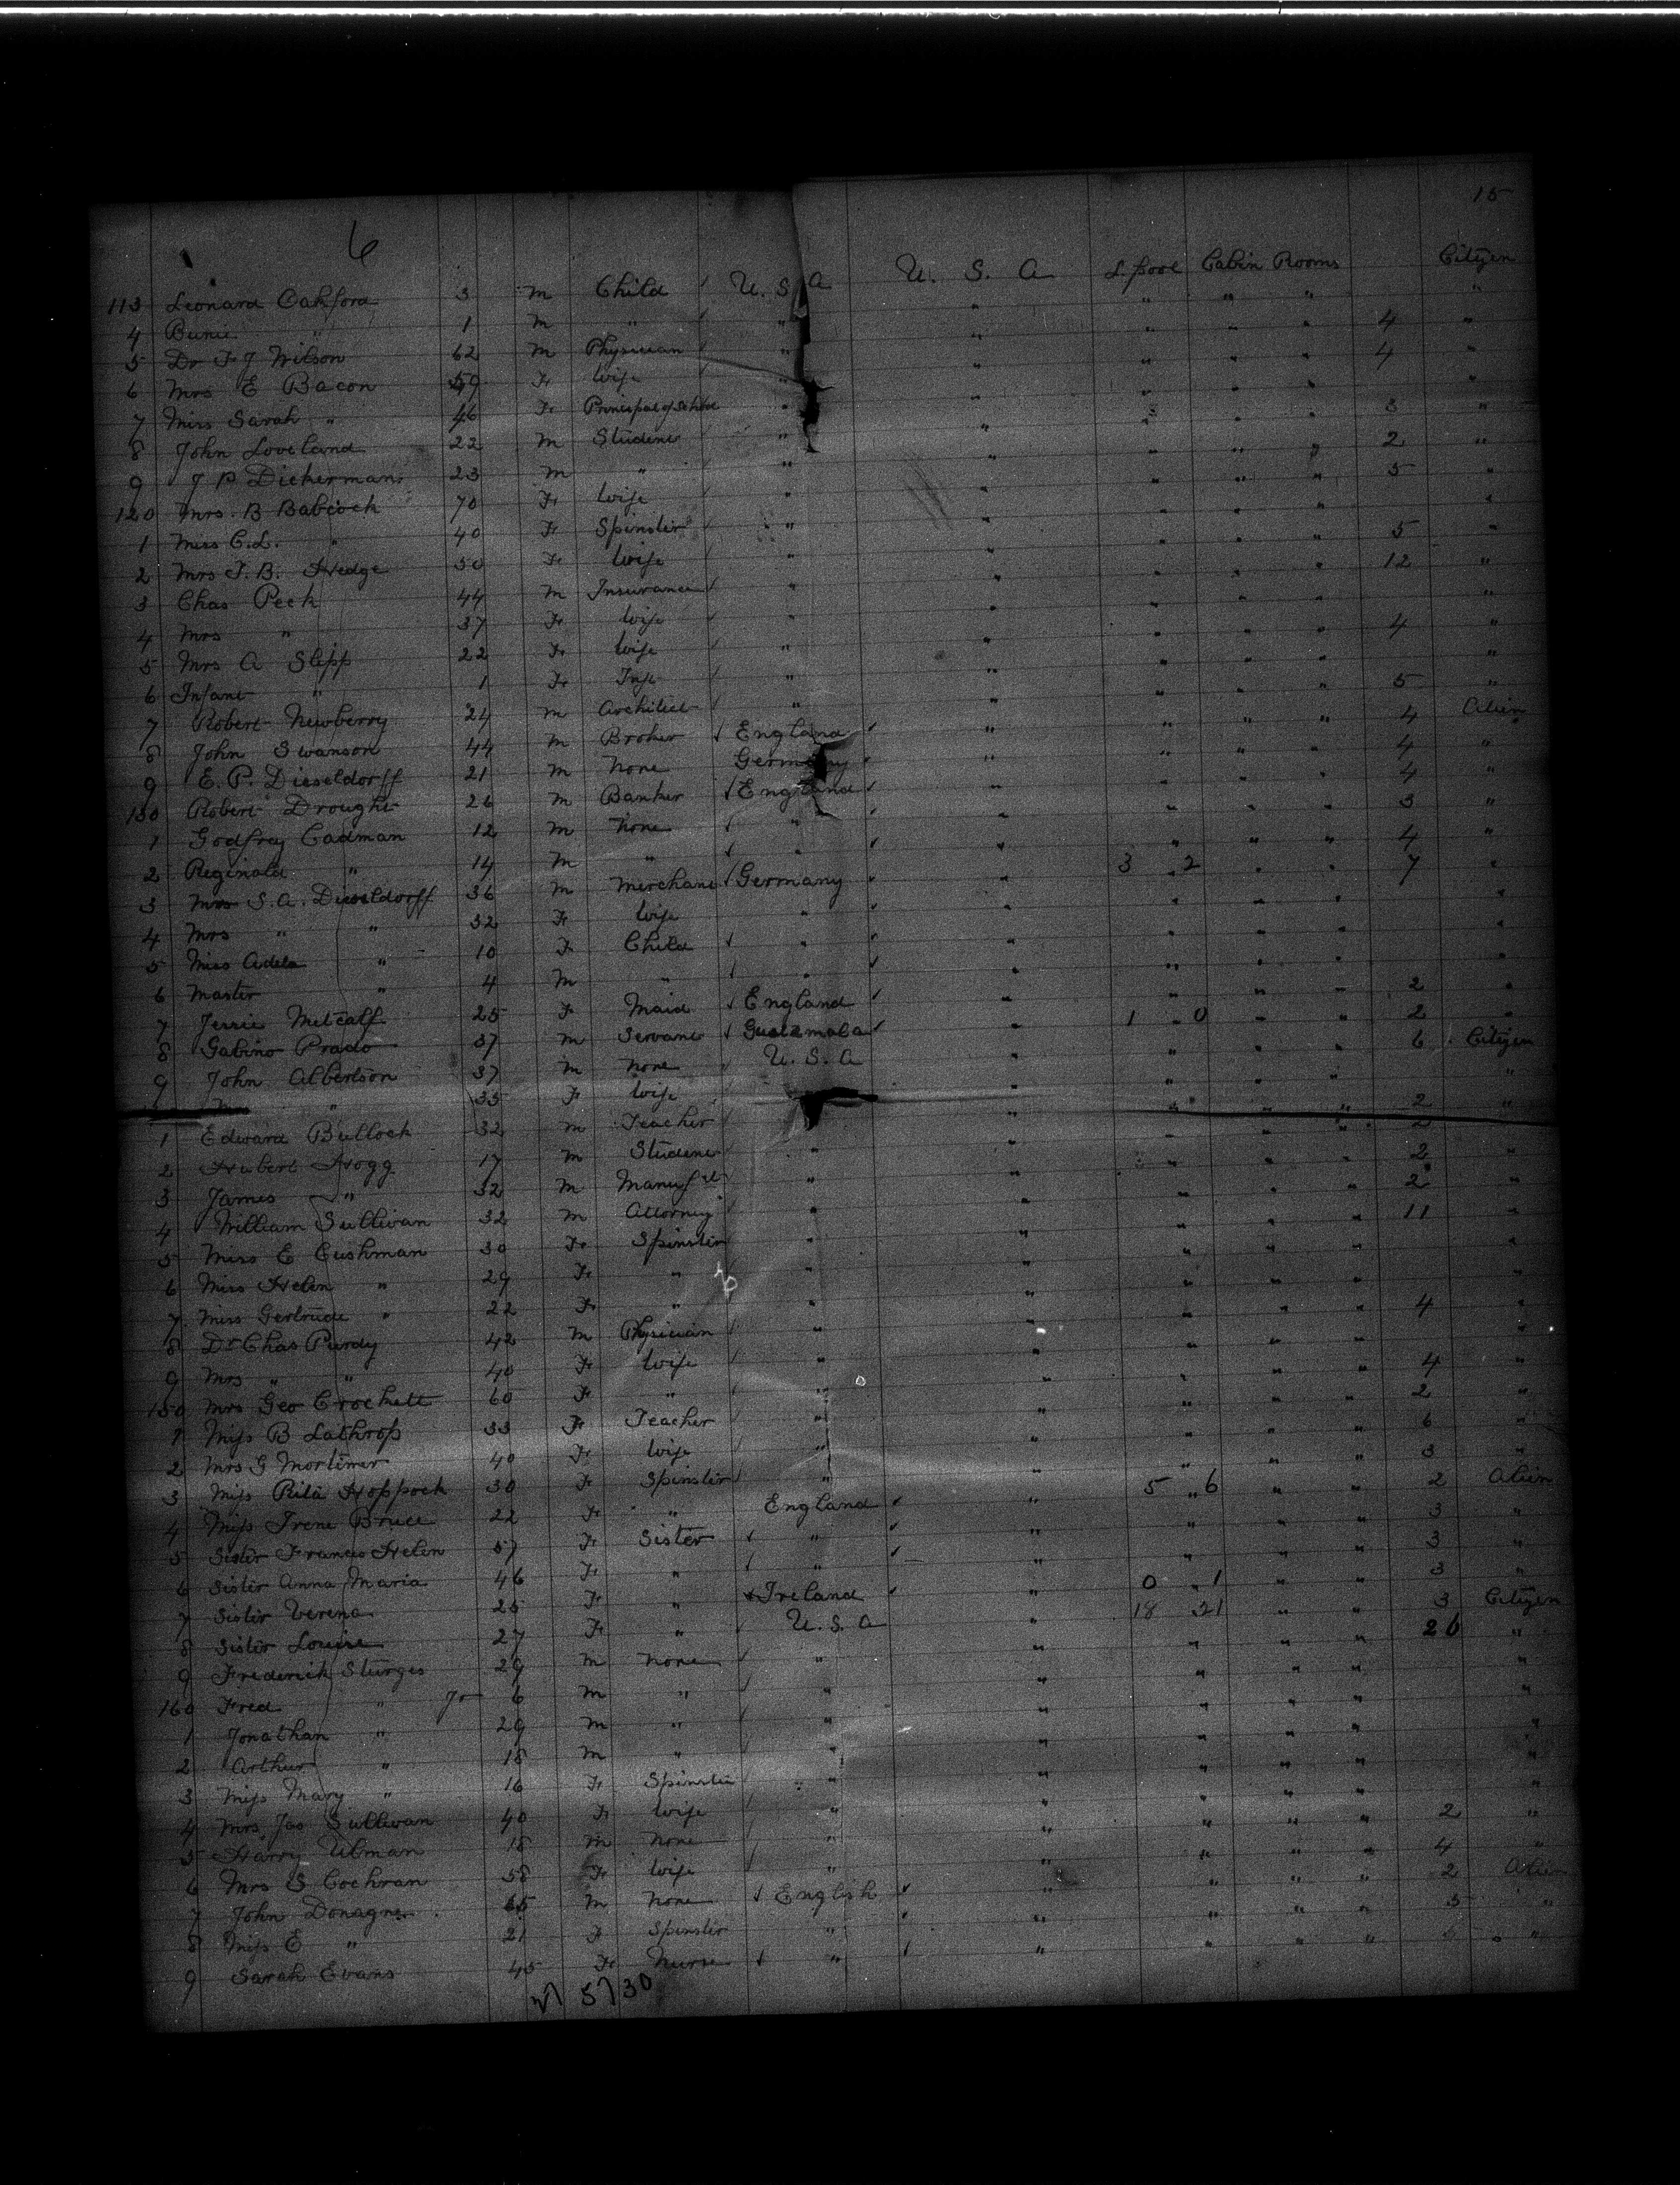 15
6
113 Leonard Oakford 3 m Child U.S.A U. S. A L.pool Cabin Rooms Citizen
4 " 1 m " " " " " " "
5 Dr F J Wilson 62 m Physician " " " " " 4 "
6 Mrs E Bacon 59 F wife " " " " " 4 "
7 Miss Sarah " 46 F Principal of School " " " " " "
8 John Loveland 22 m Student " " " " " 3 "
9 J P Dickerman 23 m " " " " " " 2 "
120 Mrs. B Babcock 70 F wife " " " " " 5 "
1 Miss C.L. " 40 F Spinster " " " " " "
2 Mrs F. B. Hedge 50 F wife " " " " " 5 "
3 Chas Peck 44 m Insurance " " " " " 12 "
4 Mrs " 37 F wife " " " " " "
5 Mrs A Slipp 22 F wife " " " " " 4 "
6 Infant " 1 F Inft " " " " " "
7 Robert Newberry 24 m Architect " " " " " 5 "
8 John Swanson 44 m Broker England " " " " 4 Alien
9 E. P. Dieseldorff 21 m None Germany " " " " 4 "
130 Robert Drought 26 m Banker England " " " " 4 "
1 Godfrey Cadman 12 m None " " " " " 3 "
2 Reginald " 14 m " " " " " " 4 "
3 S.A. Dieseldorff 36 m Merchant Germany " 3 " 2 " " 7 "
4 Mrs " " 32 F wife " " " " " "
5 Miss Adela " 10 F Child " " " " " "
6 Master " 4 m " " " " " " "
7 Jessie Metcalf 25 F Maid England " " " " 2 "
8 Gabino Prado 37 m Servant Guatemala " 1 " 0 " " 2 "
9 John Albertson 37 m None U.S.A " " " " 6 Citizen
" 35 F wife " " " " "
1 Edward Bullock 32 m Teacher " " " " 2 "
2 Hubert Hogg 17 m Student " " " " " 2
3 James " 32 m " " " " " 2 "
4 William Sullivan 32 m Attorney " " " " " 2 "
5 Miss E Cushman 30 F Spinster " " " " " 11 "
6 Miss Helen " 29 F " " " " " " "
7 Miss Gertrude " 22 F " " " " " " "
8 Dr Chas Purdy 42 m Physician " " " " " 4 "
9 Mrs " " 40 F wife " " " " " "
150 Mrs Geo Crockett 60 F " " " " " " 4 "
1 Miss B Lathrop 33 F Teacher " " " " " 2 "
2 Mrs G Mortimer 40 F wife " " " " " 6 "
3 Miss Rita Hoppock 30 F Spinster " " " " " 3 "
4 Miss Irene Bruce 22 F " England " 5 " 6 " " 2 Alien
5 Sister Frances Helen 57 F Sister " " " " " 3 "
6 Sister Anna Maria 46 F " " " " " " 3 "
7 Sister Verena 25 F " Ireland " 0 " 1 " " 3 "
8 Sister Louise 27 F " U.S.A " 18 21 " " 3 Citizen
9 Frederick Sturges 29 m None " " " " " 26 "
160 Fred " Jr 6 m " " " " " " "
1 Jonathan " 29 m " " " " " " "
2 Arthur " 18 m " " " " " " "
3 Miss Mary " 16 F Spinster " " " " " "
4 Mrs Jas Sullivan 40 F wife " " " " " "
5 Harry Ulman 18 m None " " " " " 2 "
6 Mrs S Cochran 58 F wife " " " " " 4 "
7 John 65 m None English " " " " 2 Alien
8 Miss E " 21 F Spinster " " " " " 3 "
9 Sarah Evans 45 F Nurse " " " " " "
5730